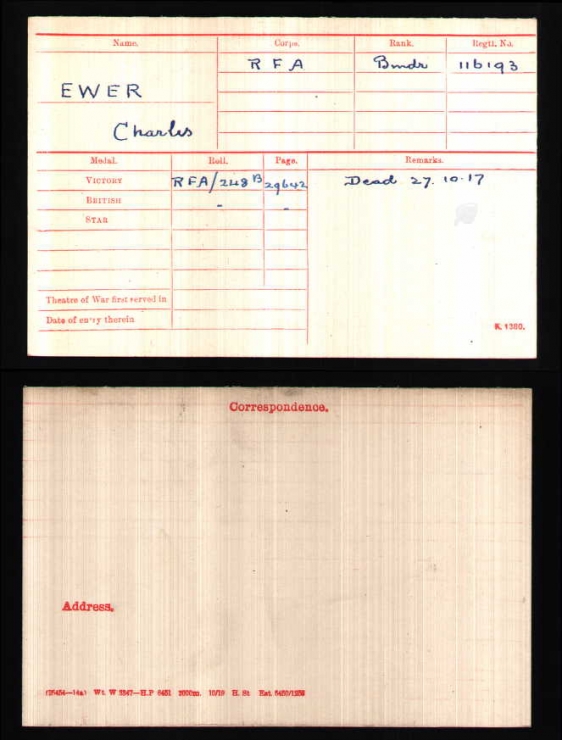 Name. Corps. Rank. Regtl. No.
R F A Bmdr 116193
EWER
Charles
Medal. Roll. Page. Remarks.
VICTORY RFA/248 B 29642 Dead 27.10.17
BRITISH - -
STAR
Theatre of War first served in
Date of entry therein
K. 1380.
Correspondence.
Address.
Wt. W 3347—H.P 2000m. 10/19 H. St